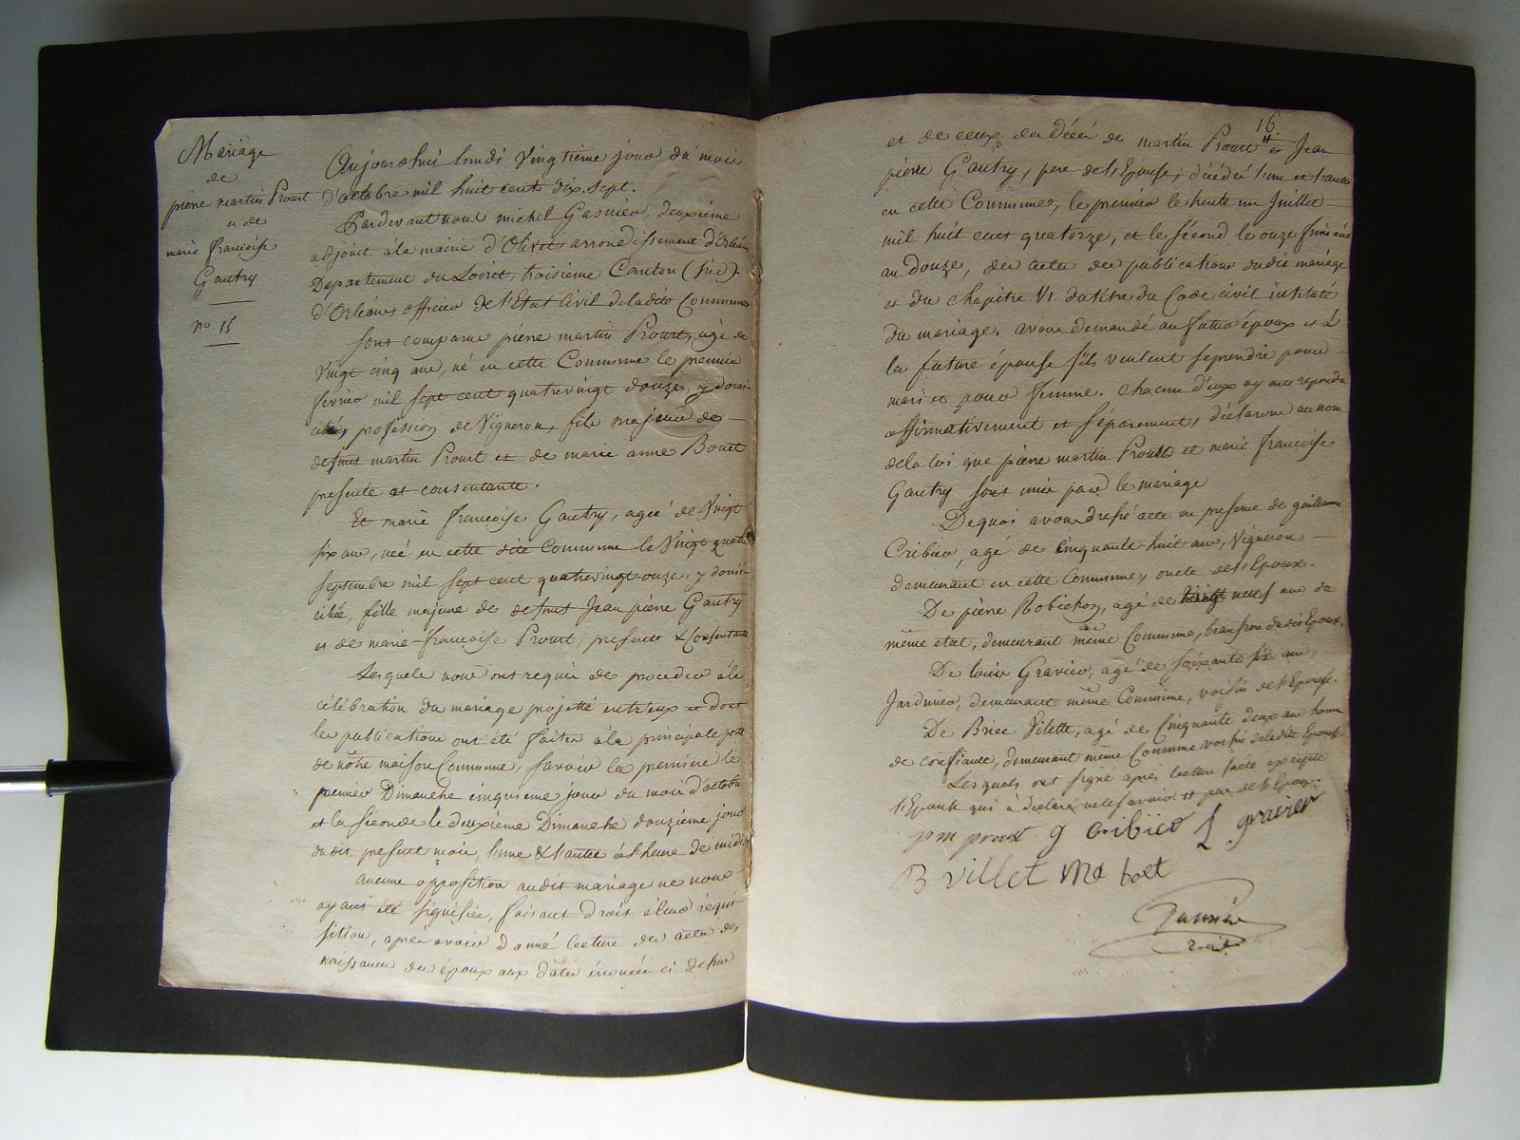 Mariage
de
pierre martin Proust
et de
marie francoise
Gautry
no 15
Aujourdhui lundi vingtieme jour du mois
d'octobre mil huit cent dix sept.
Pardevant nous michel Gasnier, deuxième
adjoint à la mairie d'Olivet arrondissement d'Orléans
Departement du Loiret, troisième Canton (Sud)
d'Orléans officier de l'Etat Civil de ladite Commune
Sont comparus pierre martin Proust, agé de
vingt cinq ans, né en cette Commune le premier
fevrier mil sept cent quatrevingt douze, y domi-
cilié, profession de Vigneron, fils majeur de
defunt martin Proust et de marie anne Bouet
presente et consentante.
Et marie francoise Gautry, agée de Vingt
six ans, née en cette dite Commune le Vingt quatre
Septembre mil sept cent quatrevingt onze, y domi-
ciliée, fille majeure de defunt Jean pierre Gautry
et de marie-francoise Proust, presente & Consentante
Lesquels nous ont requis de proceder à la
célébration du mariage projetté entr'eux et dont
les publications ont été faites à la principale porte
de nôtre maison Commune, savoir la premiere le
premier Dimanche cinquieme jour du mois d'octobre
et la seconde le deuxième Dimanche douzième jour
dudit present mois, l'une & l'autre à l'heure de midi
aucune opposition audit mariage ne nous
ayant été signifiée, faisant droit à leur réqui-
sition, après avoir donné lecture des actes de
naissance des époux aux dates énoncées ci dessus
16
et de ceux du décès de martin Proust et Jean
pierre Gautry, pere de l'Epouse, décédés l'un et l'autre
en cette Commune, le premier le trente un Juillet
mil huit cent quatorze, et le sécond le onze frimaire
an douze, des actes des publications dudit mariage
et du chapitre VI du titre du Code civil intitulé
du mariage, avons demandé au futur époux et à
la future épouse s'ils veulent se prendre pour
mari et pour femme. chacun d'eux ayant repondu
affirmativement et séparement, déclarons au nom
de la loi que pierre martin Proust et marie francoise
Gautry sont unis par le mariage
Dequoi avons dressé acte en presence de guillaume
Cribier, agé de cinquante huit ans, Vigneron
demeurant en cette Commune, oncle de l'Epoux.
De pierre Robichon, agé de neuf ans de
même état, demeurant même Commune, beaufrere dudit Epoux.
De louis Gravier, agé de soixante six ans,
Jardinier, demeurant même Commune, voisin de l'Epouse.
De Brice Vilette, agé de Cinquante deux ans homme
de confiance, demeurant même Commune voisin de ladite Epouse
Lesquels ont signé après lecture faite excepté
l'Epouse qui a déclaré ne le savoir et mere de l'Epoux.
pm proust g cribier L gravier
B villet Ma boet
Gasnier